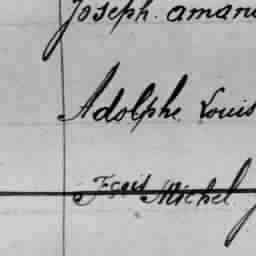 Joseph. amand
Adolphe Louis
Fçois Michel